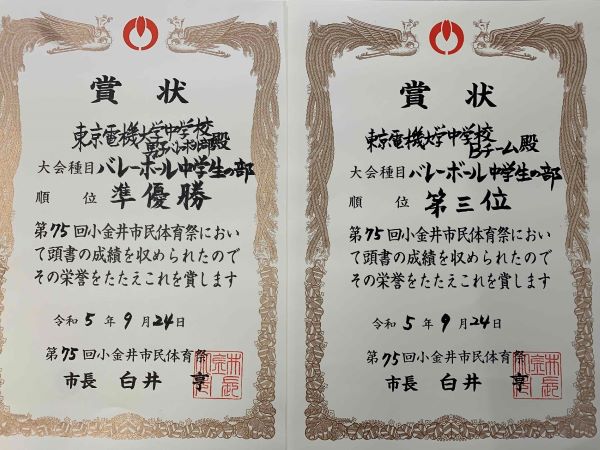 賞状
東京電機大学中学校
殿
大会種目 バレーボール中学生の部
順位 準優勝
第75回小金井市民体育祭におい
て頭書の成績を収められたので
その栄誉をたたえこれを賞します
令和5年9月24日
第75回小金井市民体育祭
市長 白井 亨
賞状
東京電機大学中学校
Bチーム殿
大会種目 バレーボール中学生の部
順位 第三位
第75回小金井市民体育祭におい
て頭書の成績を収められたので
その栄誉をたたえこれを賞します
令和5年9月24日
第75回小金井市民体育祭
市長 白井 亨